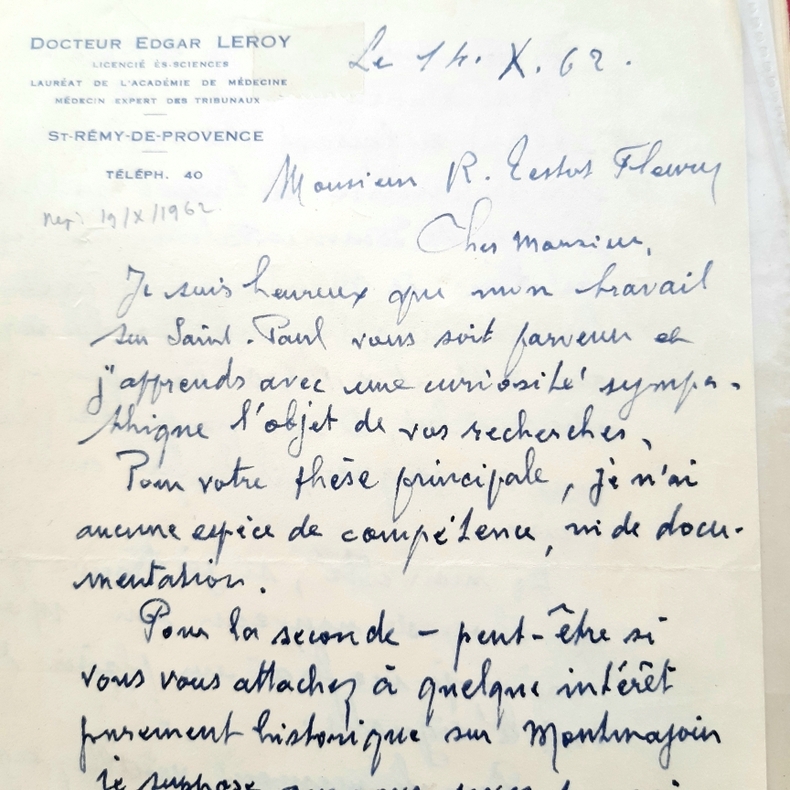 DOCTEUR EDGAR LEROY
LICENCIÉ ÈS-SCIENCES
LAURÉAT DE L'ACADÉMIE DE MÉDECINE
MÉDECIN EXPERT DES TRIBUNAUX
ST-RÉMY-DE-PROVENCE
TÉLÉPH. 40
Le 14. X. 62.
Monsieur R. Testot Fleury
19/X/1962
Cher Monsieur,
Je suis heureux que mon travail
sur Saint-Paul vous soit parvenu et
j'apprends avec une curiosité sympa-
thique l'objet de vos recherches.
Pour votre thèse principale, je n'ai
aucune espèce de compétence, ni de docu-
mentation.
Pour la seconde – peut-être si
vous vous attachez à quelque intérêt
purement historique sur Montmajour
je suppose que vous